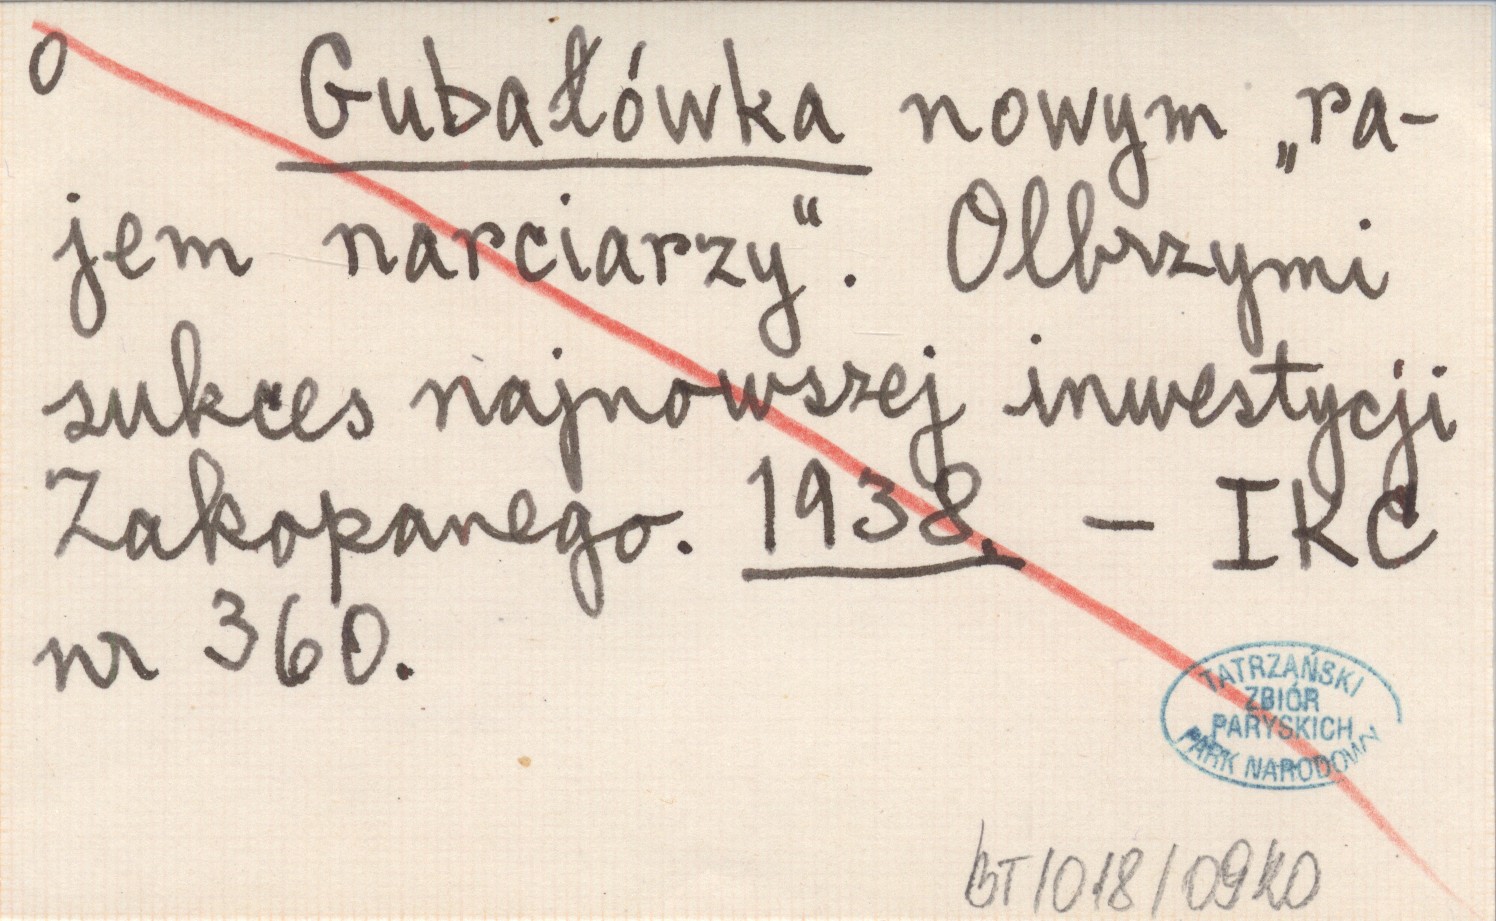 o Gubałówka nowym „ra-
jem narciarzy“. Olbrzymi
sukces najnowszej inwestycji
Zakopanego. 1938. — IKC
nr 360.
TATRZAŃSKI
ZBIÓR
PARYSKICH
PARK NARODOWY